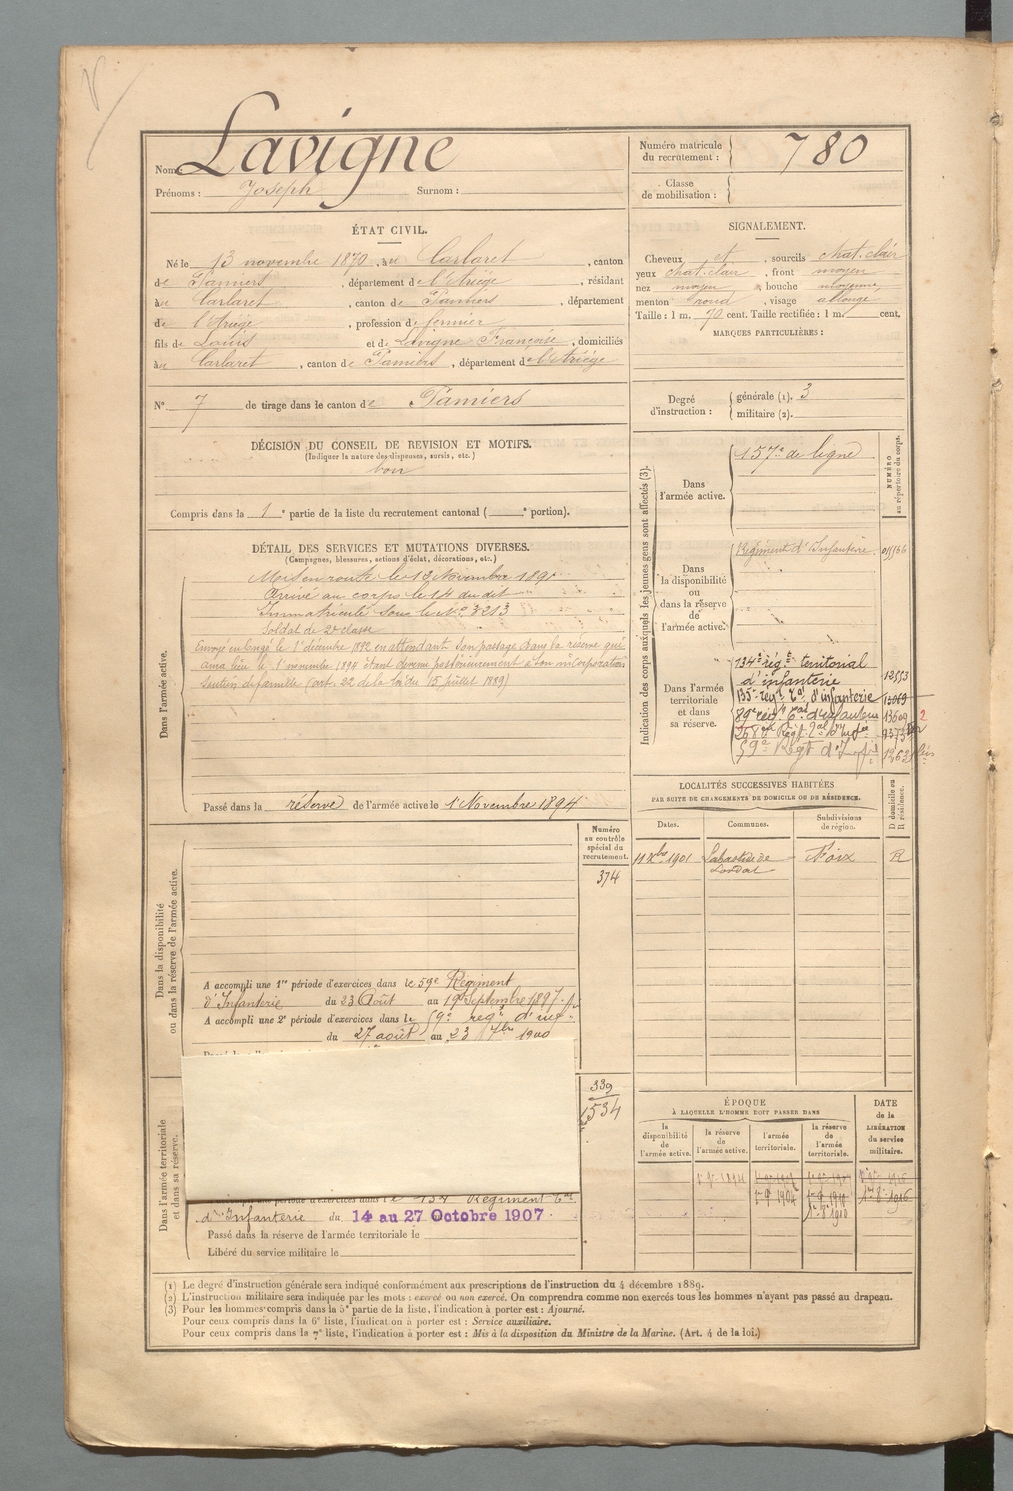 Nom : Lavigne
Prénoms : Joseph Surnom :
Numéro matricule
du recrutement : 780
Classe
de mobilisation :
ÉTAT CIVIL.
Né le 13 novembre 1870, à Carlaret, canton
de Pamiers, département de l'Ariège, résidant
à Carlaret, canton de Pamiers, département
de l'Ariège, profession de fermier
fils de Louis et de Lavigne Françoise, domiciliés
à Carlaret, canton de Pamiers, département de l'Ariège
SIGNALEMENT.
Cheveux et, sourcils chat. clair
yeux chat. clair, front moyen
nez moyen, bouche moyenne,
menton rond, visage allongé
Taille : 1 m. 70 cent. Taille rectifiée : 1 m. cent.
MARQUES PARTICULIÈRES :
N° 7 de tirage dans le canton de Pamiers
Degré
d'instruction :
générale (1). 3
militaire (2).
DÉCISION DU CONSEIL DE REVISION ET MOTIFS.
(Indiquer la nature des dispenses, sursis, etc.)
bon
Compris dans la 1e partie de la liste du recrutement cantonal ( e portion).
DÉTAIL DES SERVICES ET MUTATIONS DIVERSES.
(Campagnes, blessures, actions d'éclat, décorations, etc.)
Dans l'armée active.
Mis en route le 13 Novembre 1891
Arrivé au corps le 14 du dit
Immatriculé sous le N° 3213
Soldat de 2e classe
Envoyé en congé le 1 décembre 1892 en attendant son passage dans la réserve qui
aura lieu le 1 novembre 1894 étant devenu postérieurement à son incorporation
soutien de famille (art. 22 de la loi du 15 juillet 1889)
Passé dans la réserve de l'armée active le 1 Novembre 1894
Indication des corps auxquels les jeunes gens sont affectés (3).
NUMÉRO
au répertoire du corps.
Dans
l'armée active.
157e de ligne
Dans
la disponibilité
ou
dans la réserve
de
l'armée active.
Régiment d'Infanterie
Dans l'armée
territoriale
et dans
sa réserve.
134e rég.t territorial
d'infanterie 12553
135e rég.t T.al d'infanterie
89e rég.t T.al d'infanterie 13609
59e Régt d'Inf.ie
LOCALITÉS SUCCESSIVES HABITÉES
PAR SUITE DE CHANGEMENTS DE DOMICILE OU DE RÉSIDENCE.
Dates.
Communes.
Subdivisions
de région.
D domicile ou
R résidence.
11 Xbre 1901 Labastide de Lordat Foix R
Numéro
au contrôle
spécial du
recrutement.
374
Dans la disponibilité
ou dans la réserve de l'armée active.
A accompli une 1re période d'exercices dans le 59e Régiment
d'Infanterie du 23 Août au 19 Septembre 1897
A accompli une 2e période d'exercices dans le 59e rég.t d'inf.
du 27 août au 23 7bre 1900
Dans l'armée territoriale
et dans sa réserve.
339
1534
A accompli une période d'exercices dans le 134 Régiment T.al
d'Infanterie du 14 au 27 Octobre 1907
Passé dans la réserve de l'armée territoriale le
Libéré du service militaire le
ÉPOQUE
À LAQUELLE L'HOMME DOIT PASSER DANS
la
disponibilité
de
l'armée active.
la réserve
de
l'armée active.
l'armée
territoriale.
la réserve
de
l'armée
territoriale.
DATE
de la
LIBÉRATION
du service
militaire.
(1) Le degré d'instruction générale sera indiqué conformément aux prescriptions de l'instruction du 4 décembre 1889.
(2) L'instruction militaire sera indiquée par les mots : exercé ou non exercé. On comprendra comme non exercés tous les hommes n'ayant pas passé au drapeau.
(3) Pour les hommes compris dans la 5e partie de la liste, l'indication à porter est : Ajourné.
Pour ceux compris dans la 6e liste, l'indication à porter est : Service auxiliaire.
Pour ceux compris dans la 7e liste, l'indication à porter est : Mis à la disposition du Ministre de la Marine. (Art. 4 de la loi.)